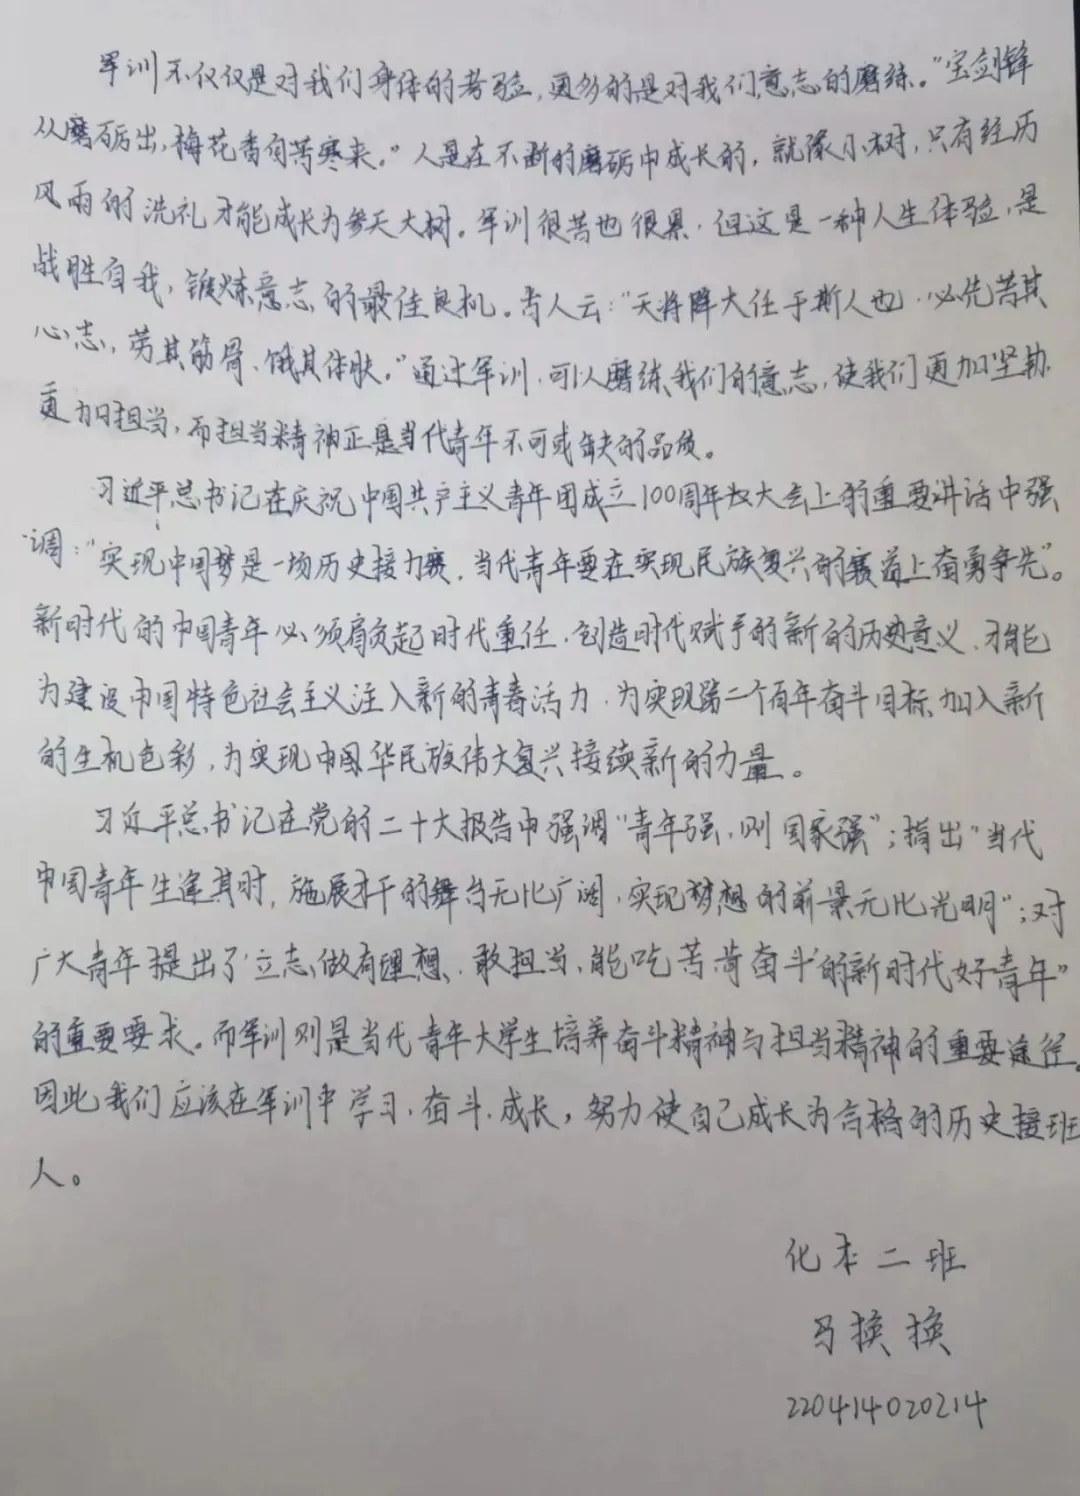 军训不仅仅是对我们身体的考验,更多的是对我们意志的磨练。"宝剑锋
从磨砺出,梅花香自苦寒来。"人是在不断的磨砺中成长的,就像小树,只有经历
风雨的洗礼才能成长为参天大树。军训很苦也很累,但这是一种人生体验,是
战胜自我,锻炼意志的最佳良机。古人云:"天将降大任于斯人也,必先苦其
心志,劳其筋骨、饿其体肤。"通过军训,可以磨练我们的意志,使我们更加坚韧
更加担当,而担当精神正是当代青年不可或缺的品质。
习近平总书记在庆祝中国共产主义青年团成立100周年权大会上的重要讲话中强
调:"实现中国梦是一场历史接力赛,当代青年要在实现民族复兴的赛道上奋勇争先"。
新时代的中国青年必须肩负起时代重任,创造时代赋予的新的历史意义,才能
为建设中国特色社会主义注入新的青春活力,为实现第二个百年奋斗目标加入新
的生机色彩,为实现中国华民族伟大复兴接续新的力量。
习近平总书记在党的二十大报告中强调"青年强,则国家强";指出"当代
中国青年生逢其时,施展才干的舞台无比广阔,实现梦想的前景无比光明";对
广大青年提出了"立志做有理想、敢担当、能吃苦肯奋斗的新时代好青年"
的重要要求。而军训则是当代青年大学生培养奋斗精神与担当精神的重要途径。
因此我们应该在军训中学习、奋斗、成长,努力使自己成长为合格的历史接班
人。
化本二班
马换换
220414020214